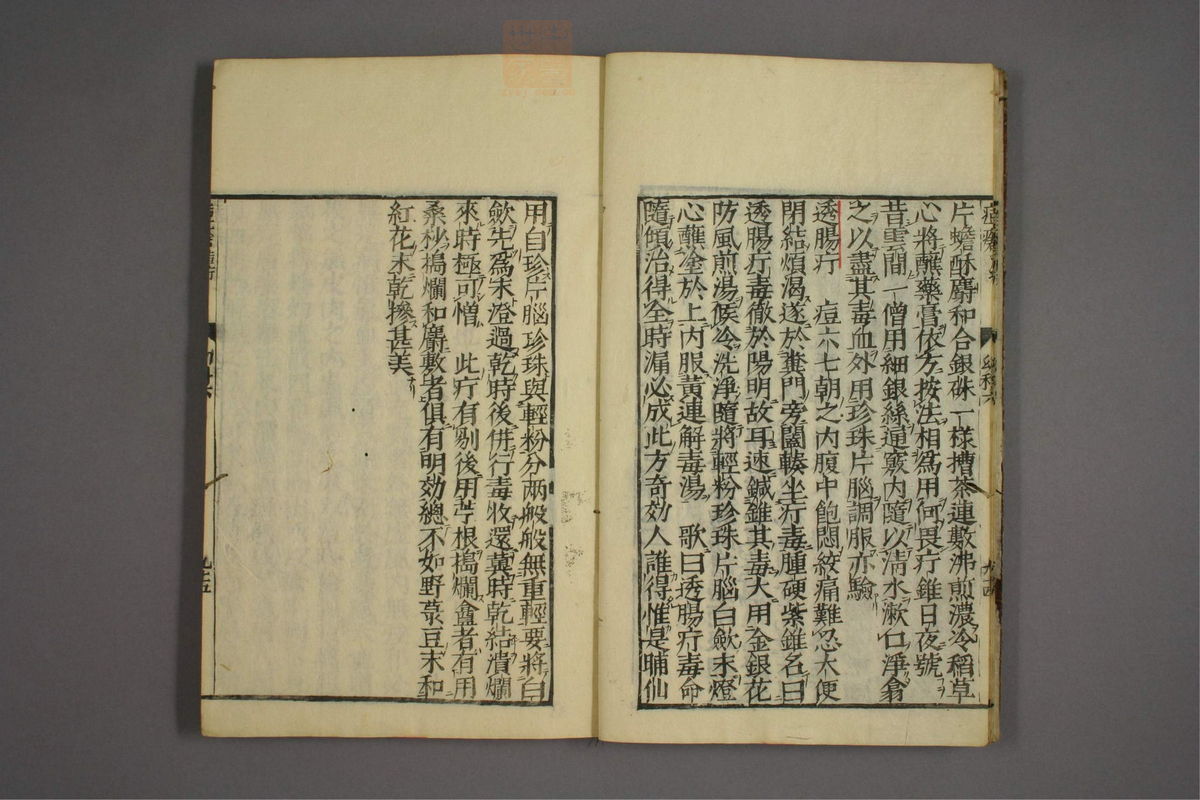 片蟾酥麝和合銀硃一樣擂茶連敷沸煎濃冷稻草
心將蘸藥膏依方按法相爲用何畏疔錐日夜號
昔雲間一僧用細銀絲通竅内隨以清水漱口淨翕
之以盡其毒血外用珍珠片腦調服亦驗
透腸疔 痘六七朝之内腹中飽悶絞痛難忍大便
閉結煩渴遂於糞門旁闥輳坐疔毒腫硬紫錐名曰
透腸疔毒徹於陽明故耳速鍼錐其毒大用金銀花
防風煎湯候冷洗淨隨將輕粉珍珠片腦白歛末燈
心蘸塗於上内服黃連解毒湯 歌曰透腸疔毒命
隨傾治得全時漏必成此方奇効人誰得惟是晡仙
用自珍片腦珍珠與輕粉分兩般般無重輕要將白
歛先爲末澄過乾時後併行毒收還冀時乾結潰爛
來時極可憎 此疔有剔後用苧根搗爛盦者有用
桑杪搗爛和麝敷者俱有明効總不如野菉豆末和
紅花末乾摻甚美
九十五